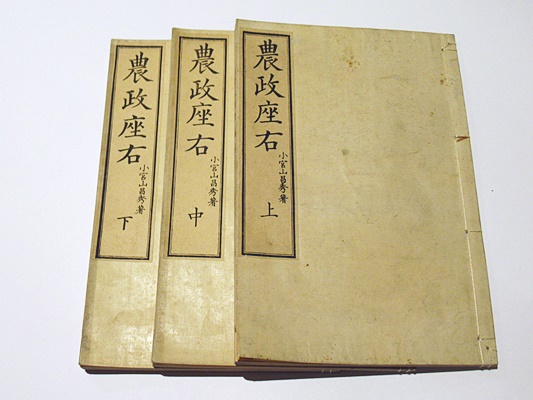 農政座右
小宮山昌秀著
上
農政座右
小宮山昌秀著
中
農政座右
小宮山昌秀著
下